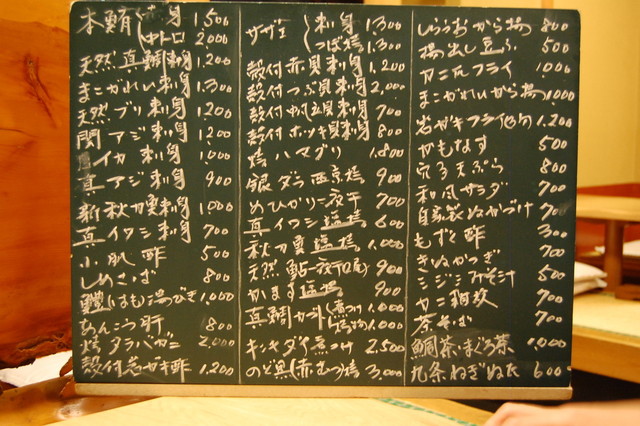 本鮪 刺身 1,500
(中トロ 2,000
天然真鯛刺身 1,200
まこがれい刺身 1,300
天然ブリ刺身 1,200
関アジ刺身 1,200
イカ刺身 1,000
真アジ刺身 900
新秋刀魚刺身 1,000
真イワシ刺身 700
小肌酢 500
しめさば 800
鱧(はも)湯びき 1,000
あんこう肝 800
焼タラバガニ 2,000
殻付岩ガキ酢 1,200
サザエ 刺身 1,300
つぼ焼 1,300
殻付赤貝刺身 1,200
殻付つぶ貝刺身 2,000
殻付帆立貝刺身 700
殻付ホッキ貝刺身 800
焼ハマグリ 1,800
銀ダラ西京焼 900
めひかり一夜干 700
真イワシ塩焼 600
秋刀魚塩焼 1,000
天然鮎一夜干(1尾) 900
かます塩焼 900
真鯛カブト(煮つけ 1,000
(塩焼 1,000
キンキダイ煮つけ 2,500
のど黒(赤むつ)焼 3,000
しらうおから揚 800
揚出し豆ふ 500
カニ爪フライ 1,000
まこがれいから揚 1,000
岩ガキフライ(2ケ) 1,200
かもなす 500
穴子天ぷら 800
和風サラダ 700
自家製ぬかづけ 700
もずく酢 300
きぬかつぎ 700
シジミみそ汁 500
カニ雑炊 700
茶そば 700
鯛茶・まぐろ茶 1,000
九条ねぎぬた 600